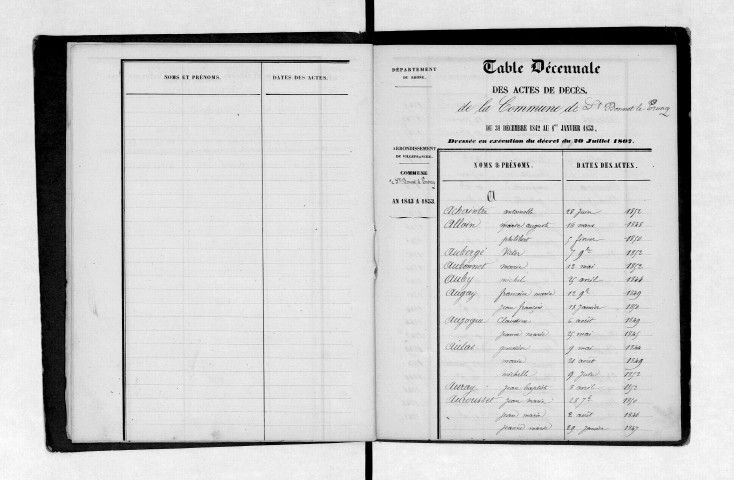 NOMS ET PRÉNOMS. DATES DES ACTES.
DÉPARTEMENT
DU RHONE.
ARRONDISSEMENT
DE VILLEFRANCHE.
COMMUNE
de St Bonnet le Troncy
AN 1843 A 1853.
Table Décennale
DES ACTES DE DÉCÈS.
de la Commune de St Bonnet le Troncy
DU 31 DÉCEMBRE 1842 AU 1er JANVIER 1853.
Dressée en exécution du décret du 20 Juillet 1807.
NOMS & PRÉNOMS. DATES DES ACTES.
A
Achaintre antoinette 18 juin 1852
Alloin marie auguste 16 mars 1848
philibert 5 février 1850
Auberge Victor 7 9bre 1852
Aubonnet marie 12 mai 1852
Aubry michel 25 avril 1844
Augay françoise marie 12 9bre 1849
jean françois 13 janvier 1850
Auzogue Claudine 6 août 1849
jeanne marie 25 mai 1845
Aulas 9 mai 1844
marie 21 août 1849
9 juin 1852
Auray jean baptiste 8 avril 1852
Auroussel jean marie 28 7bre 1850
jean marie 2 août 1846
jeanne marie 29 janvier 1847